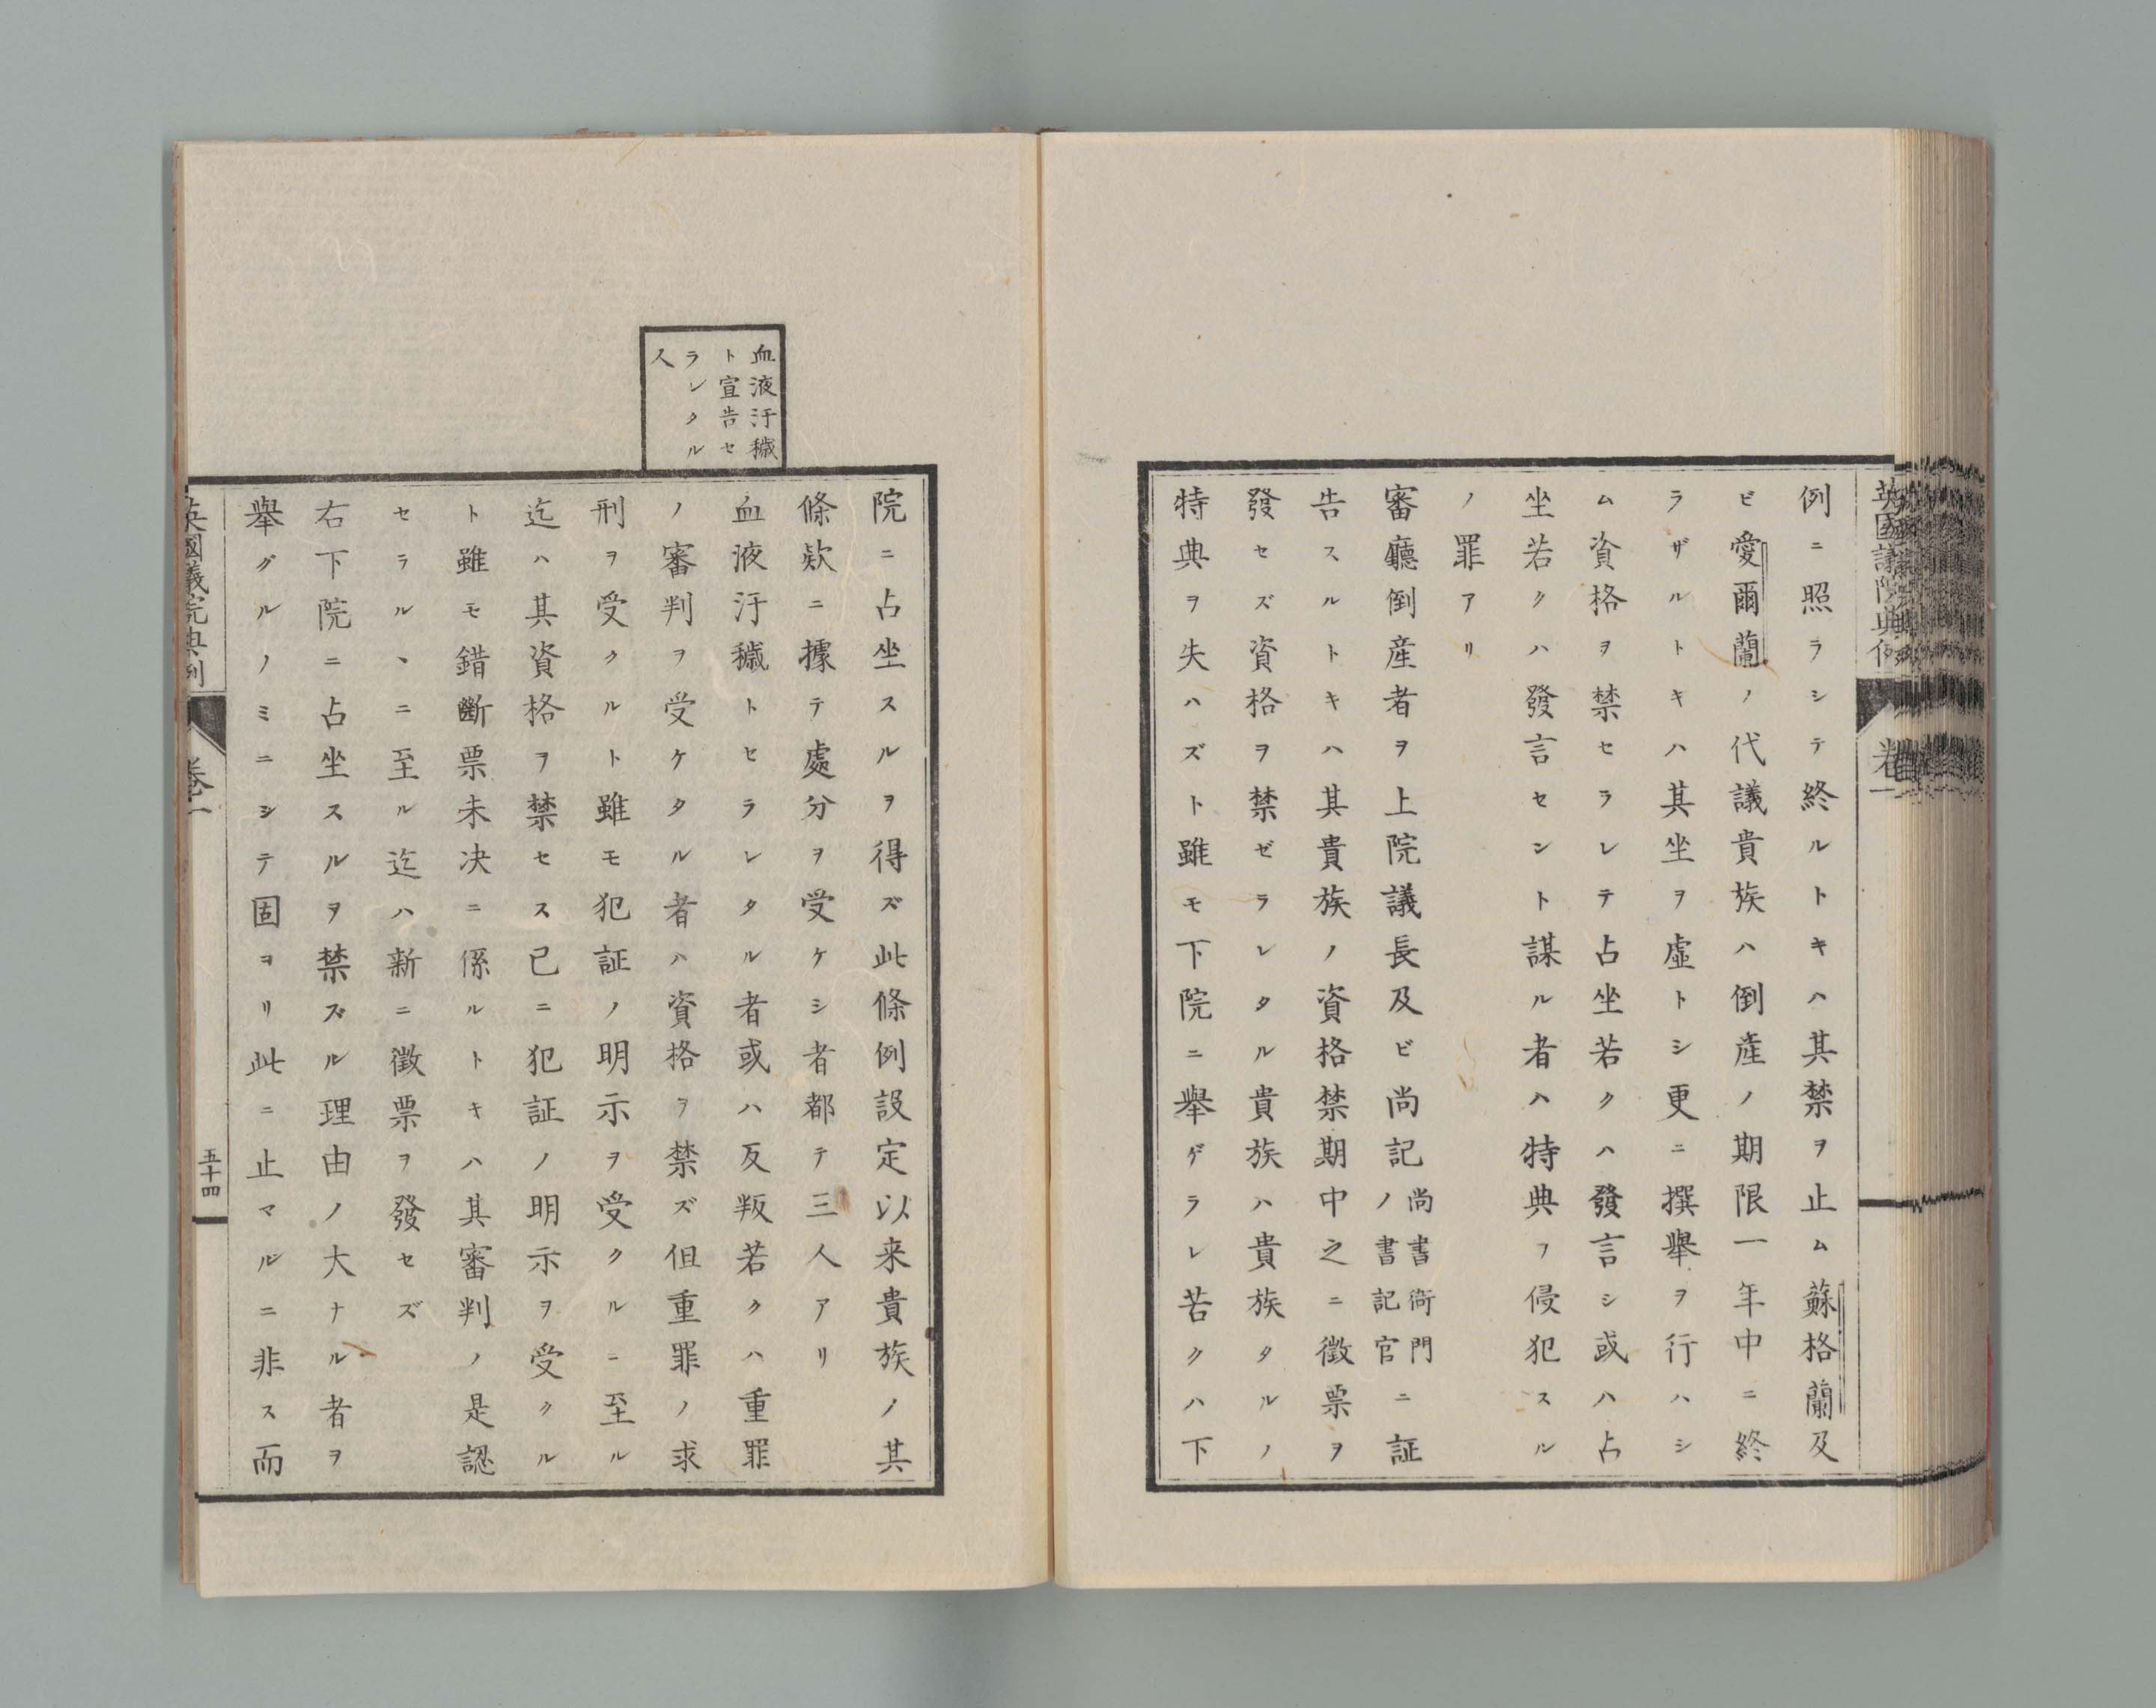 英國議院典例
卷一
例ニ照ラシテ終ルトキハ其禁ヲ止ム蘇格蘭及
ビ愛爾蘭ノ代議貴族ハ倒産ノ期限一年中ニ終
ラザルトキハ其坐ヲ虛トシ更ニ撰舉ヲ行ハシ
ム資格ヲ禁セラレテ占坐若クハ發言シ或ハ占
坐若クハ發言セント謀ル者ハ特典ヲ侵犯スル
ノ罪アリ
審廳倒産者ヲ上院議長及ビ尚記尚書衙門ノ書記官ニ証
告スルトキハ其貴族ノ資格禁期中之ニ徵票ヲ
發セズ資格ヲ禁ゼラレタル貴族ハ貴族タルノ
特典ヲ失ハズト雖モ下院ニ舉ゲラレ若クハ下
血液汙穢
ト宣告セ
ラレタル
人
院ニ占坐スルヲ得ズ此條例設定以来貴族ノ其
條欵ニ據テ處分ヲ受ケシ者都テ三人アリ
血液汙穢トセラレタル者或ハ反叛若クハ重罪
ノ審判ヲ受ケタル者ハ資格ヲ禁ズ但重罪ノ求
刑ヲ受クルト雖モ犯証ノ明示ヲ受クルニ至ル
迄ハ其資格ヲ禁セス已ニ犯証ノ明示ヲ受クル
ト雖モ錯斷票未决ニ係ルトキハ其審判ノ是認
セラルヽニ至ル迄ハ新ニ徵票ヲ發セズ
右下院ニ占坐スルヲ禁ズル理由ノ大ナル者ヲ
舉グルノミニシテ固ヨリ此ニ止マルニ非ス而
英國議院典例
卷一
五十四